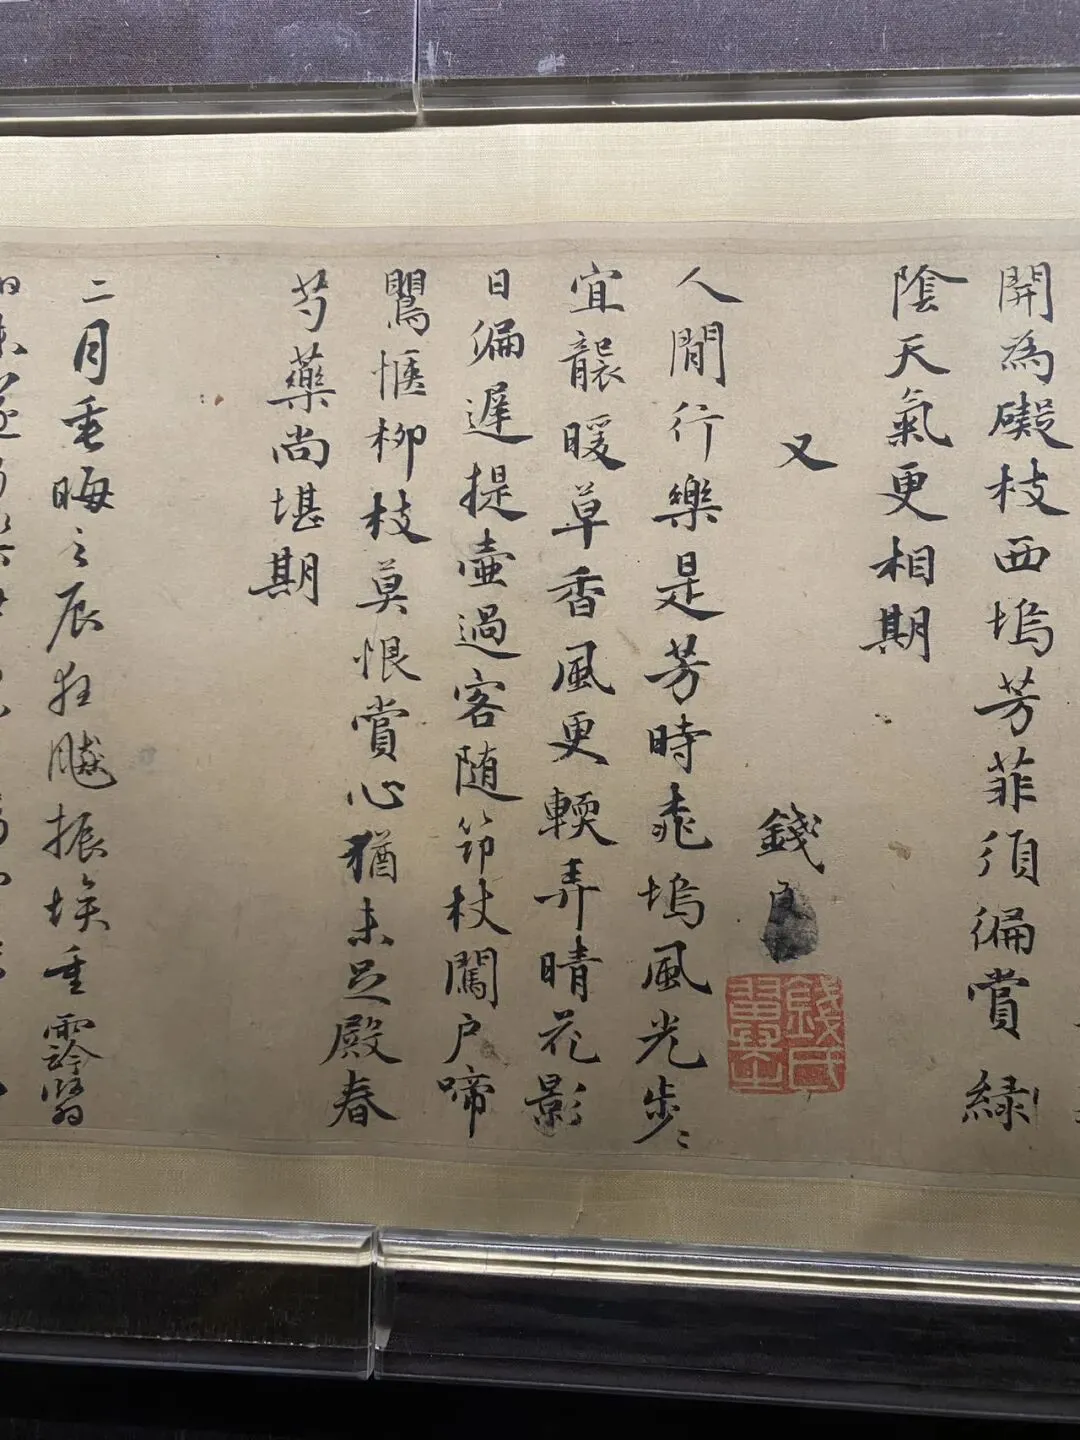 開為礙枝西塢芳菲須徧賞綠
陰天氣更相期
又
錢
錢氏
人間行樂是芳時桃塢風光步〻
宜襲暖草香風更輭弄晴花影
日徧遲提壺過客隨笻杖闖户啼
鸎恇柳枝莫恨賞心猶未足殿春
芍藥尚堪期
二月垂晦之辰狂飈振埃重霠翳